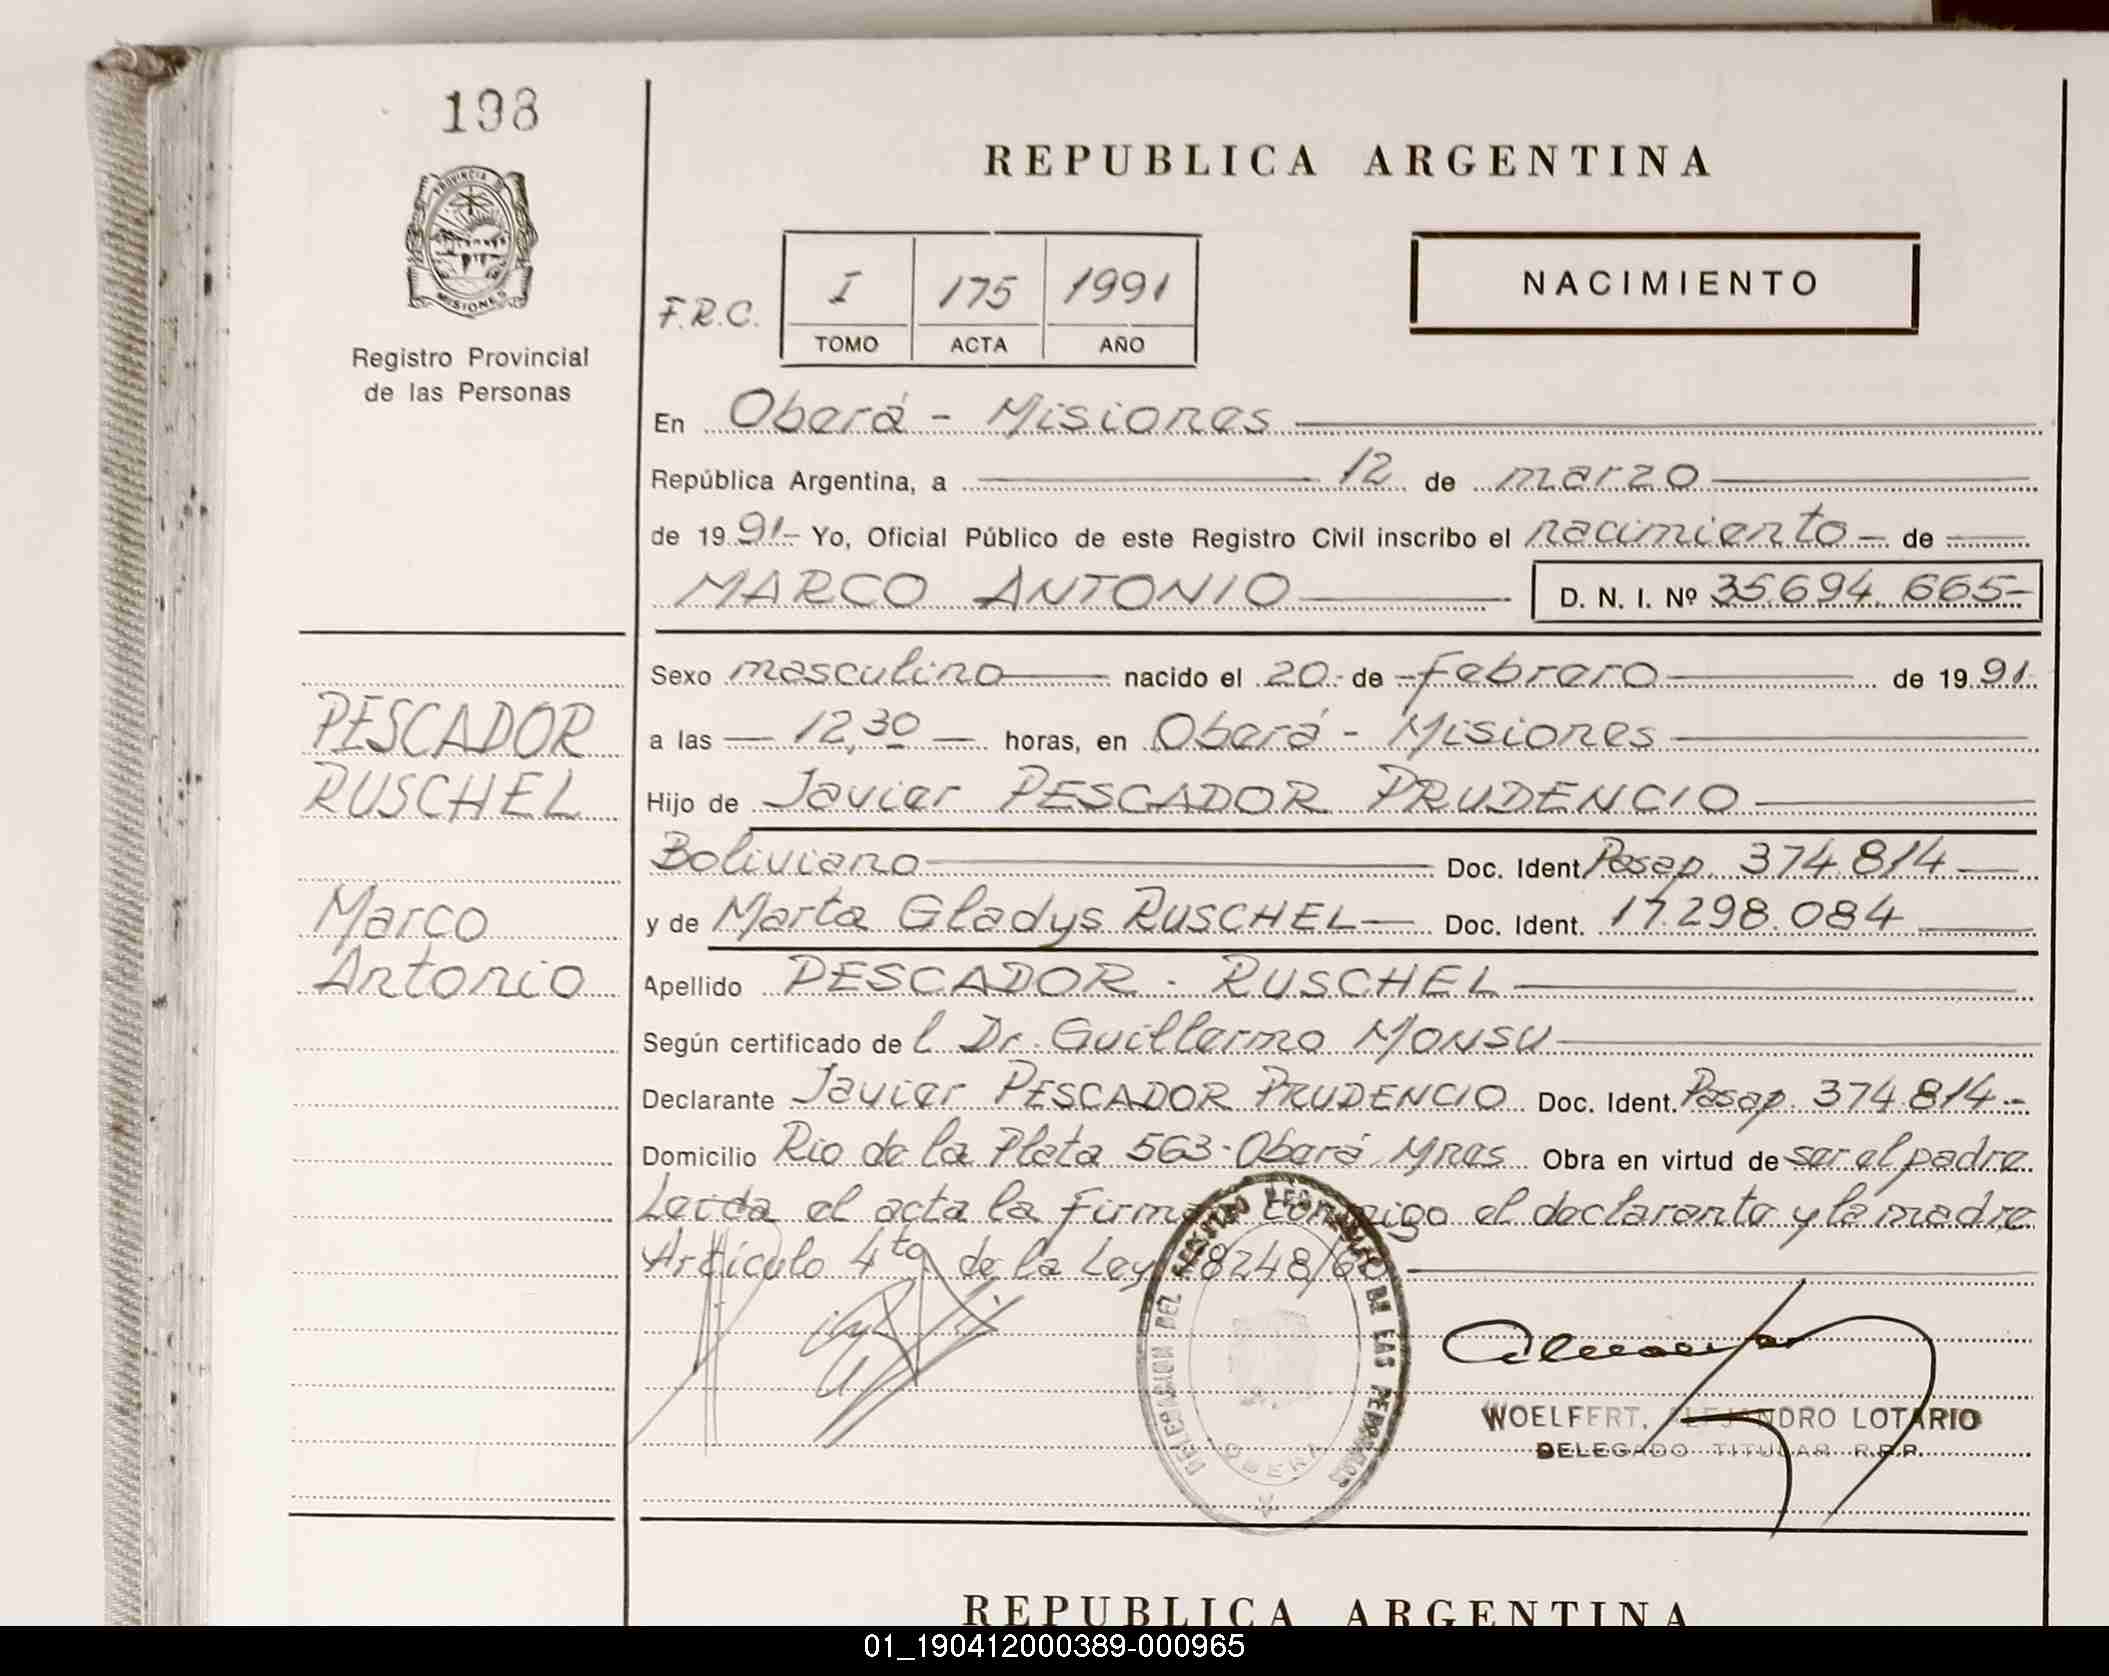 198
PROVINCIA DE
MISIONES
Registro Provincial
de las Personas
PESCADOR
RUSCHEL
Marco
Antonio
REPUBLICA ARGENTINA
F.R.C. I 175 1991
TOMO ACTA AÑO
NACIMIENTO
En Oberá - Misiones
República Argentina, a 12 de marzo
de 1991- Yo, Oficial Público de este Registro Civil inscribo el nacimiento - de
MARCO ANTONIO D. N. I. Nº 35.694.665-
Sexo masculino nacido el 20 de febrero de 1991
a las 12,30 horas, en Oberá - Misiones
Hijo de Javier PESCADOR PRUDENCIO
Boliviano Doc. Ident. Pasap. 374.814
y de Marta Gladys RUSCHEL Doc. Ident. 17.298.084
Apellido PESCADOR - RUSCHEL
Según certificado del Dr. Guillermo MONSU
Declarante Javier PESCADOR PRUDENCIO Doc. Ident. Pasap. 374.814-
Domicilio Rio de la Plata 563-Oberá Mnes Obra en virtud de ser el padre
Leida el acta la firman conmigo el declarante y la madre
Artículo 4to de la Ley 18248/69
DELEGACION DEL REGISTRO PROVINCIAL DE LAS PERSONAS
OBERA
WOELFERT, ALEJANDRO LOTARIO
DELEGADO TITULAR R.P.P.
REPUBLICA ARGENTINA
01_190412000389-000965